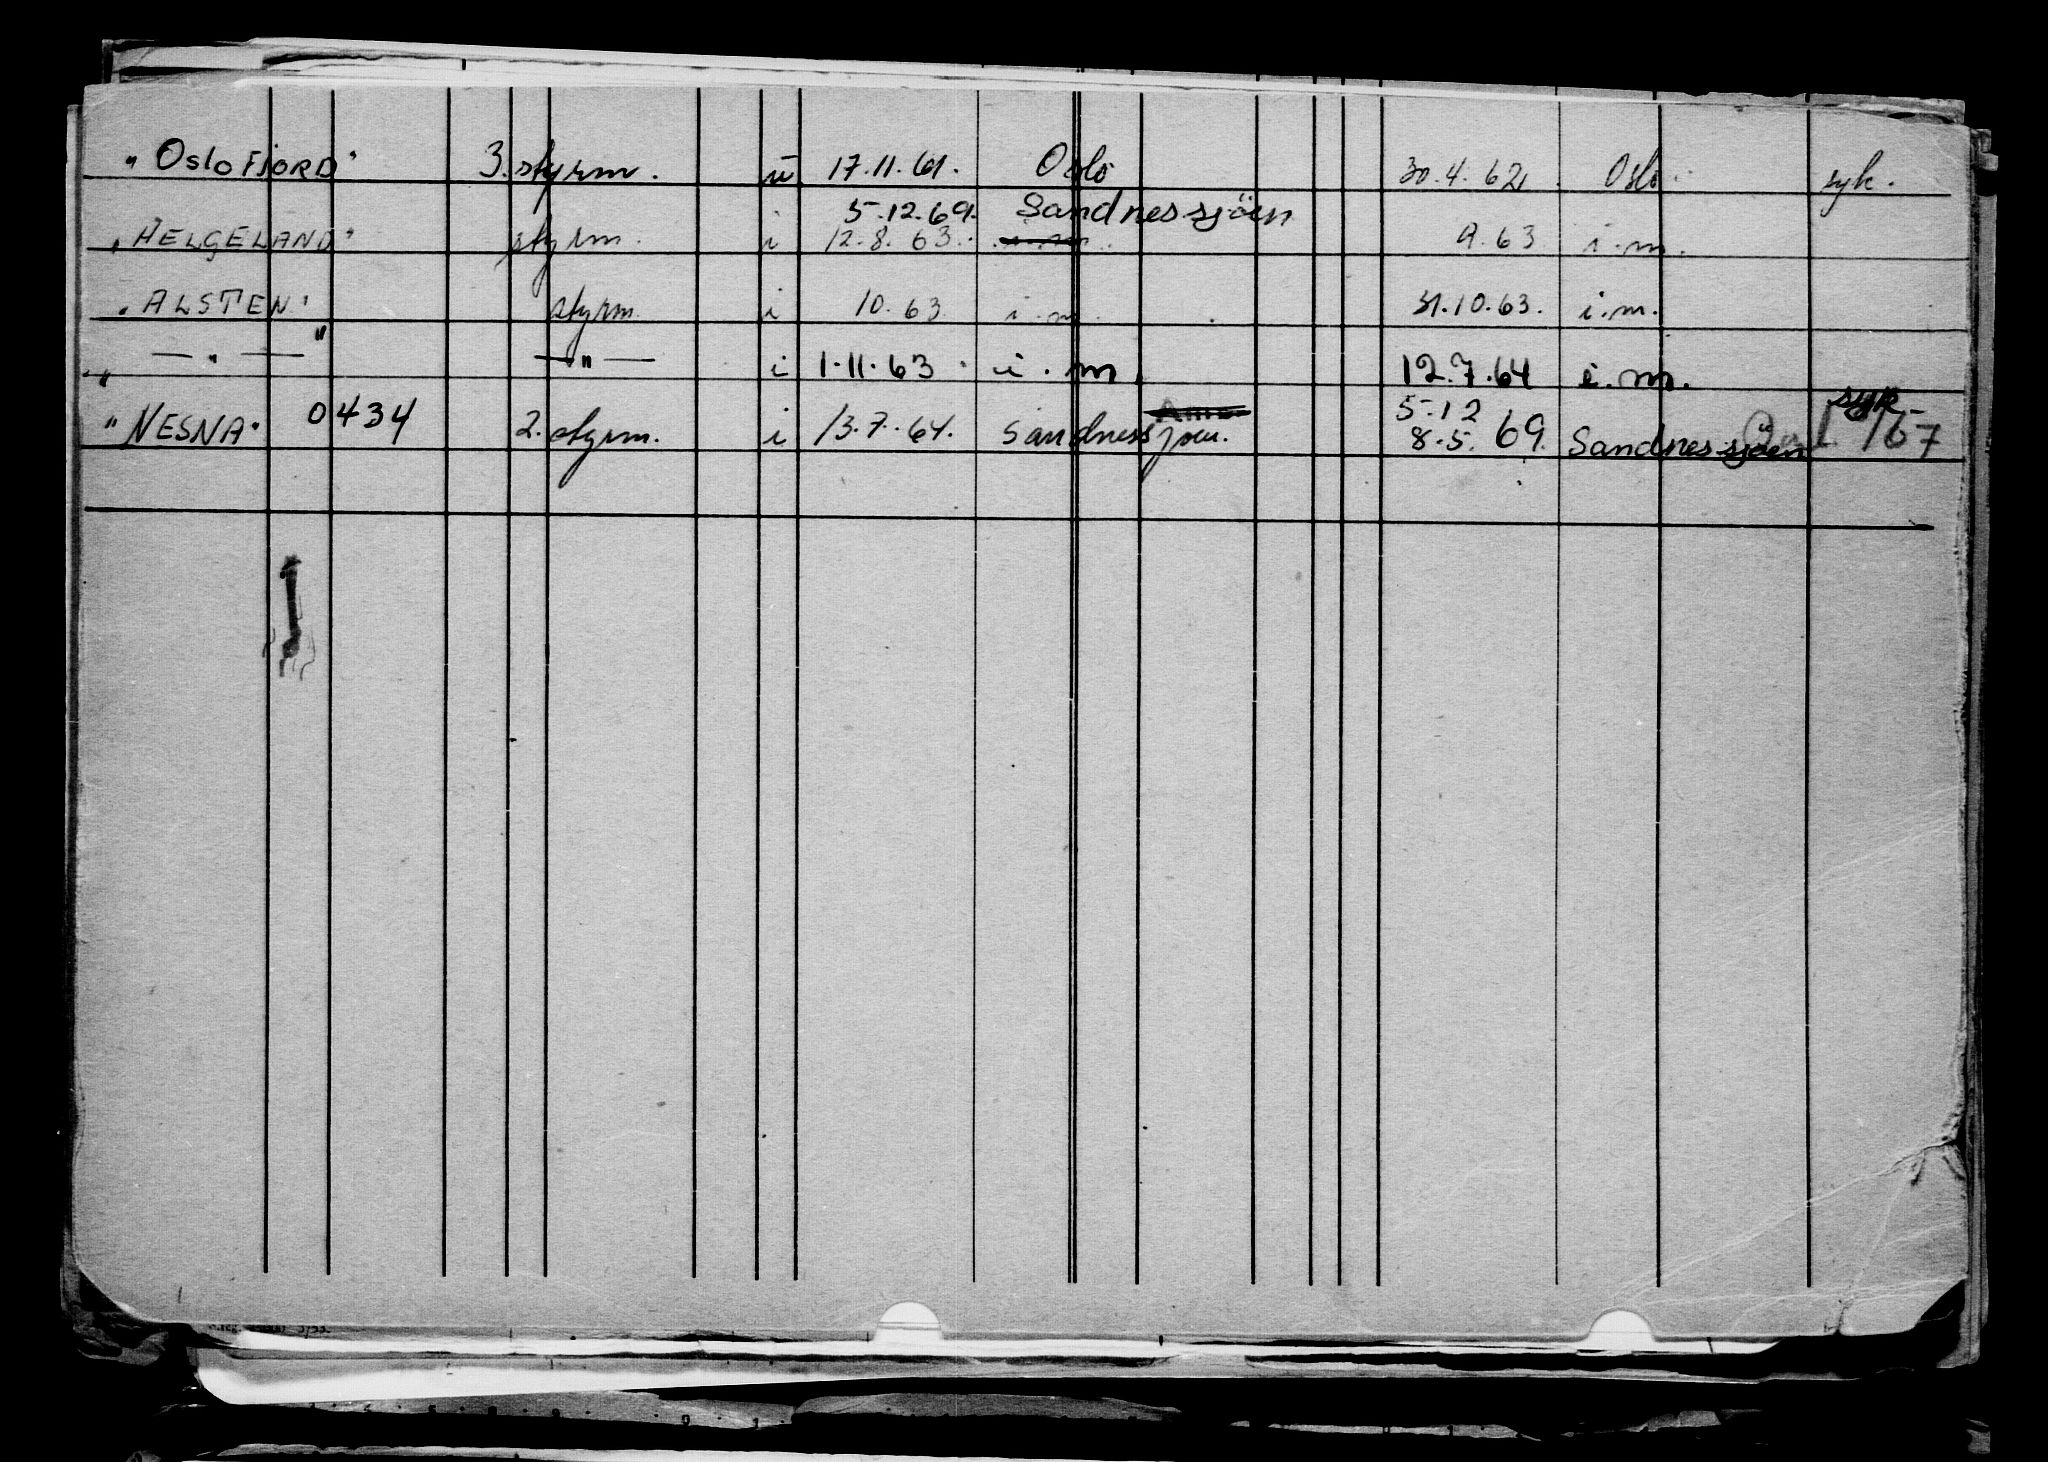 "OsloFJORD" 3. styrm. u 17.11.61. Oslo 30.4.62 Oslo syk.
5.12.69. Sandnessjöen
"HELGELAND" styrm. i 12.8.63. i.m. 9.63 i.m.
"ALSTEN" styrm. i 10.63 i.m. 31.10.63. i.m.
— " — — " — i 1.11.63. i.m. 12.7.64 i.m.
5.12 syk
"NESNA" 0434 2. styrm. i 13.7.64. Sandnessjoen. 8.5.69. Sandnessjöen /67